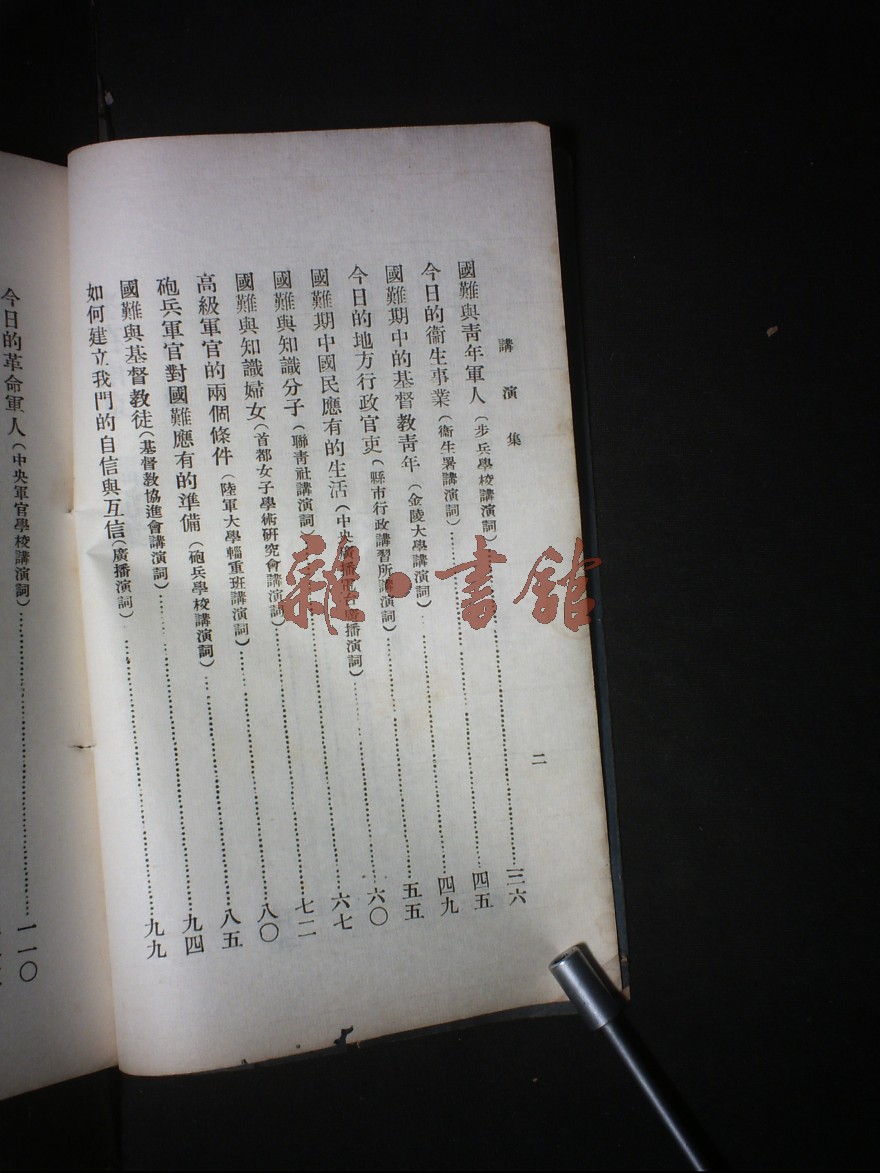 講演集
二
國難與青年軍人(步兵學校講演詞)……三六
今日的衞生事業(衞生署講演詞)……四五
國難期中的基督教青年(金陵大學講演詞)……四九
今日的地方行政官吏(縣市行政講習所講演詞)……五五
國難期中國民應有的生活(中央廣播電台廣播演詞)……六〇
國難與知識分子(聯青社講演詞)……六七
國難與知識婦女(首都女子學術研究會講演詞)……七二
高級軍官的兩個條件(陸軍大學輜重班講演詞)……八〇
砲兵軍官對國難應有的準備(砲兵學校講演詞)……八五
國難與基督教徒(基督教協進會講演詞)……九四
如何建立我門的自信與互信(廣播演詞)……九九
今日的革命軍人(中央軍官學校講演詞)……一一〇
雜·書館